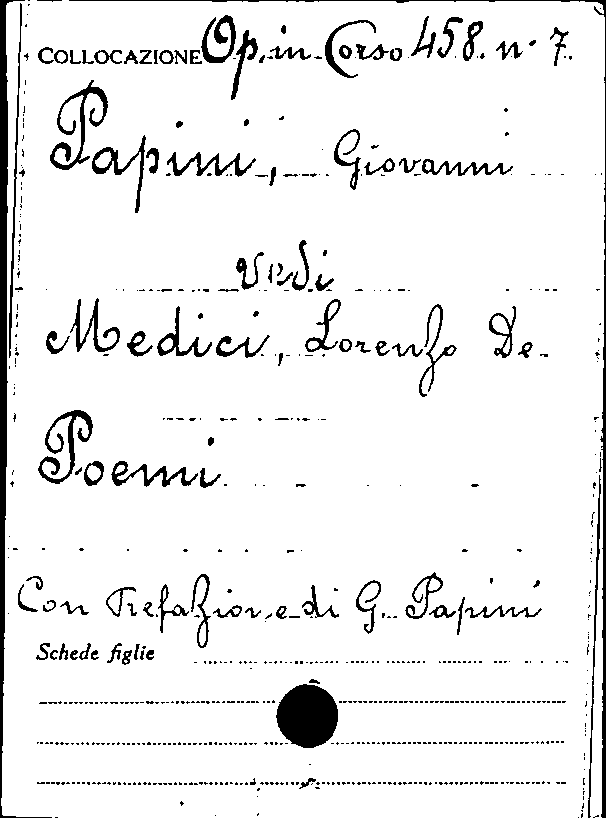 COLLOCAZIONE Op. in Corso 458. n. 7.
Papini, Giovanni
vedi
Medici, Lorenzo De
Poemi
Con Prefazione di G. Papini
Schede figlie